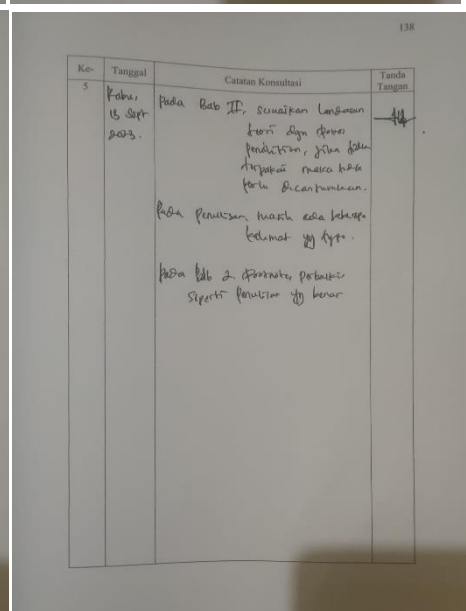 138
Ke- Tanggal Catatan Konsultasi Tanda Tangan
5 Rabu, 13 Sept 2023.
Pada Bab II, sesuaikan Landasan
teori dgn
penelitian, jika tidak
terpakai maka tidak
perlu dicantumkan.
Pada penulisan, masih ada beberapa
kalimat yg typo.
Pada Bab 2. Footnote, perbaiki
seperti penulisan yg benar